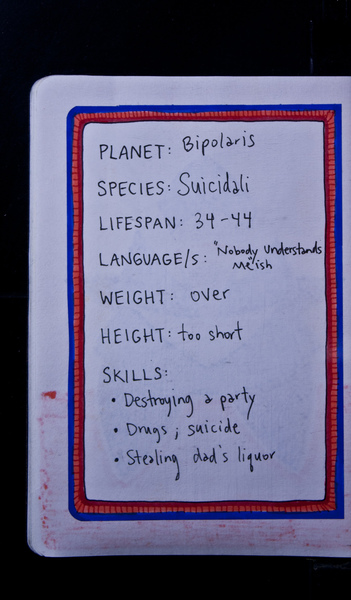 PLANET: Bipolaris
SPECIES: Suicidali
LIFESPAN: 34-44
LANGUAGE/S: "Nobody Understands
Me"ish
WEIGHT: over
HEIGHT: too short
SKILLS:
• Destroying a party
• Drugs; suicide
• Stealing dad's liquor